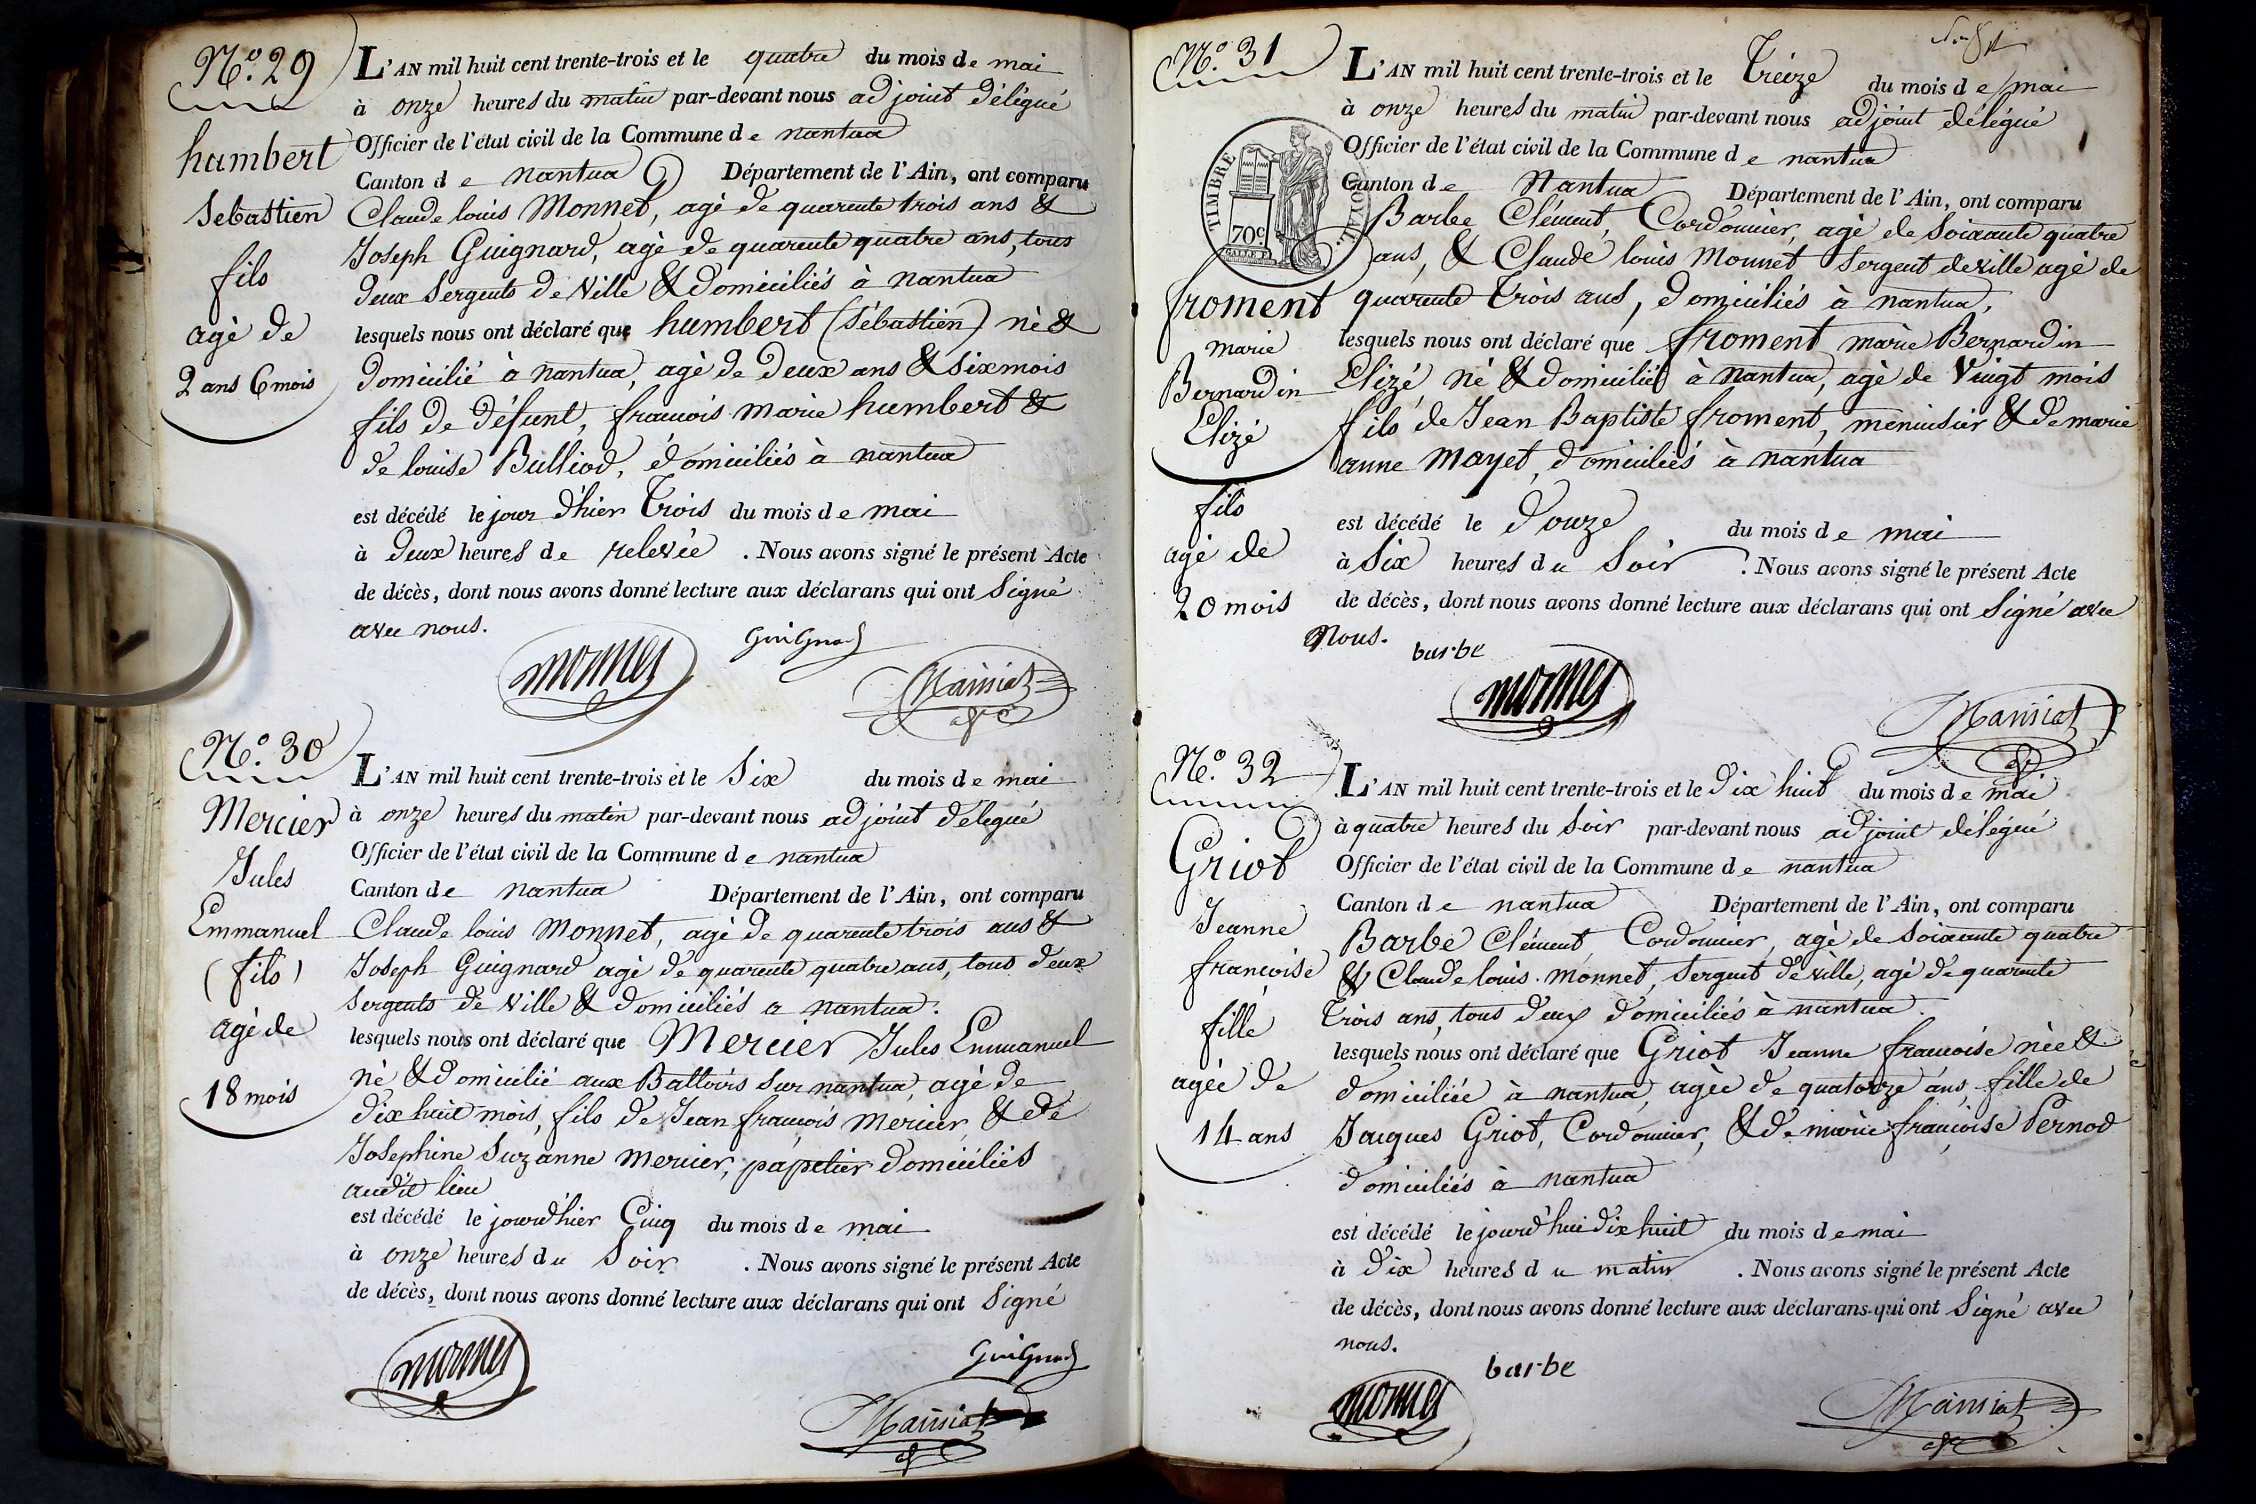 N.º 29
humbert
Sebastien
fils
agé de
2 ans 6 mois
L'AN mil huit cent trente-trois et le quatre du mois de mai
à onze heures du matin par-devant nous adjoint délégué
Officier de l'état civil de la Commune de nantua
Canton de nantua Département de l'Ain, ont comparu
Claude louis Monnet, agé de quarente trois ans &
Joseph Guignard, agé de quarente quatre ans, tous
deux Sergents de Ville & domiciliés à nantua
lesquels nous ont déclaré que humbert (Sébastien) né &
domicilié à nantua, agé de deux ans & six mois
fils de défunt, francois marie humbert &
de louise Bulliod, domiciliés à nantua
est décédé le jour d'hier trois du mois de mai
à deux heures de relevée . Nous avons signé le présent Acte
de décès, dont nous avons donné lecture aux déclarans qui ont Signé
avec nous.
monnet GuiGnard
Mansiat
N.º 30
Mercier
Jules
Emmanuel
(fils)
agé de
18 mois
L'AN mil huit cent trente-trois et le Six du mois de mai
à onze heures du matin par-devant nous adjoint délégué
Officier de l'état civil de la Commune de nantua
Canton de nantua Département de l'Ain, ont comparu
Claude louis Monnet, agé de quarente trois ans &
Joseph Guignard agé de quarente quatre ans, tous deux
Sergents de Ville & domiciliés a nantua.
lesquels nous ont déclaré que Mercier Jules Emmanuel
né & domicilié aux Battoirs Sur nantua, agé de
dix huit mois, fils de Jean francois Mercier, & de
Josephine Suzanne mercier, papetier domiciliés
audit lieu
est décédé le jour d'hier Cinq du mois de mai
à onze heures du Soir . Nous avons signé le présent Acte
de décès, dont nous avons donné lecture aux déclarans qui ont Signé
monnet GuiGnard
Mansiat
N.º 31
froment
marie
Bernardin
Elizé
fils
agé de
20 mois
TIMBRE ROYAL.
70c
L'AN mil huit cent trente-trois et le Treize du mois de mai
à onze heures du matin par-devant nous adjoint délégué
Officier de l'état civil de la Commune de nantua
Canton de Nantua Département de l'Ain, ont comparu
Barbe Clément, Cordonnier, agé de Soixante quatre
ans, & Claude louis Monnet Sergent de ville agé de
quarente trois ans, domiciliés à nantua,
lesquels nous ont déclaré que froment marie Bernardin
Elizé, né & domicilié à nantua, agé de Vingt mois
fils de Jean Baptiste froment, menuisier & de marie
anne Mayet, domiciliés à nantua
est décédé le douze du mois de mai
à Six heures du Soir . Nous avons signé le présent Acte
de décès, dont nous avons donné lecture aux déclarans qui ont Signé avec
Nous.
barbe
monnet
Mansiat
N.º 32
Griot
Jeanne
françoise
fille
agée de
14 ans
L'AN mil huit cent trente-trois et le dix huit du mois de mai
à quatre heures du Soir par-devant nous adjoint délégué
Officier de l'état civil de la Commune de nantua
Canton de nantua Département de l'Ain, ont comparu
Barbe Clément Cordonnier, agé de Soixante quatre
& Claude louis Monnet, Sergent de ville, agé de quarente
trois ans, tous deux domiciliés à nantua.
lesquels nous ont déclaré que Griot Jeanne francoise née &
domiciliée à nantua, agée de quatorze ans, fille de
Jacques Griot, Cordonnier, & de marie françoise Pernod
domiciliés à nantua
est décédé le jourd'hui dix huit du mois de mai
à dix heures du matin . Nous avons signé le présent Acte
de décès, dont nous avons donné lecture aux déclarans qui ont Signé avec
nous.
barbe
monnet
Mansiat